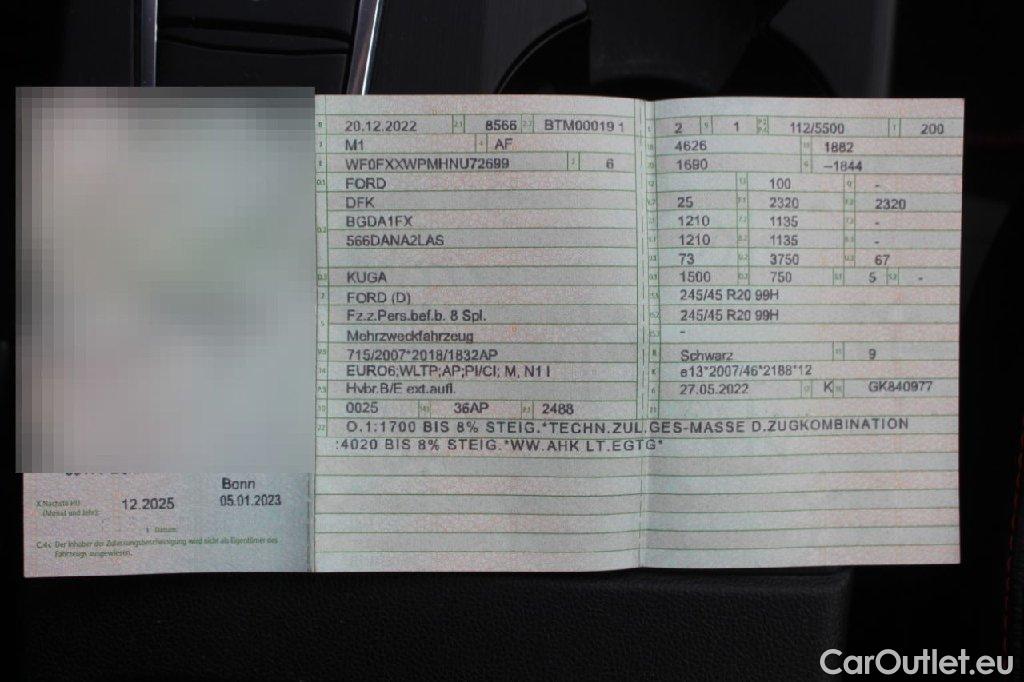 20.12.2022 8566 BTM00019 1
M1 AF
WF0FXXWPMHNU72699 6
FORD
DFK
BGDA1FX
566DANA2LAS
KUGA
FORD (D)
Fz.z.Pers.bef.b. 8 Spl.
Mehrzweckfahrzeug
715/2007*2018/1832AP
EURO6;WLTP;AP;PI/CI; M, N1 I
Hybr.B/E ext.aufl.
0025 36AP 2488
2 1 112/5500 200
4626 1882
1690 -1844
100 -
25 2320 2320
1210 1135 -
1210 1135 -
73 3750 67
1500 750 5 -
245/45 R20 99H
245/45 R20 99H
-
Schwarz 9
e13*2007/46*2188*12
27.05.2022 K GK840977
O.1:1700 BIS 8% STEIG.*TECHN.ZUL.GES-MASSE D.ZUGKOMBINATION
:4020 BIS 8% STEIG.*WW.AHK LT.EGTG*
Bonn
X Nächste HU
(Monat und Jahr): 12.2025 05.01.2023
Datum:
C.4c Der Inhaber der Zulassungsbescheinigung wird nicht als Eigentümer des
Fahrzeugs ausgewiesen.
CarOutlet.eu